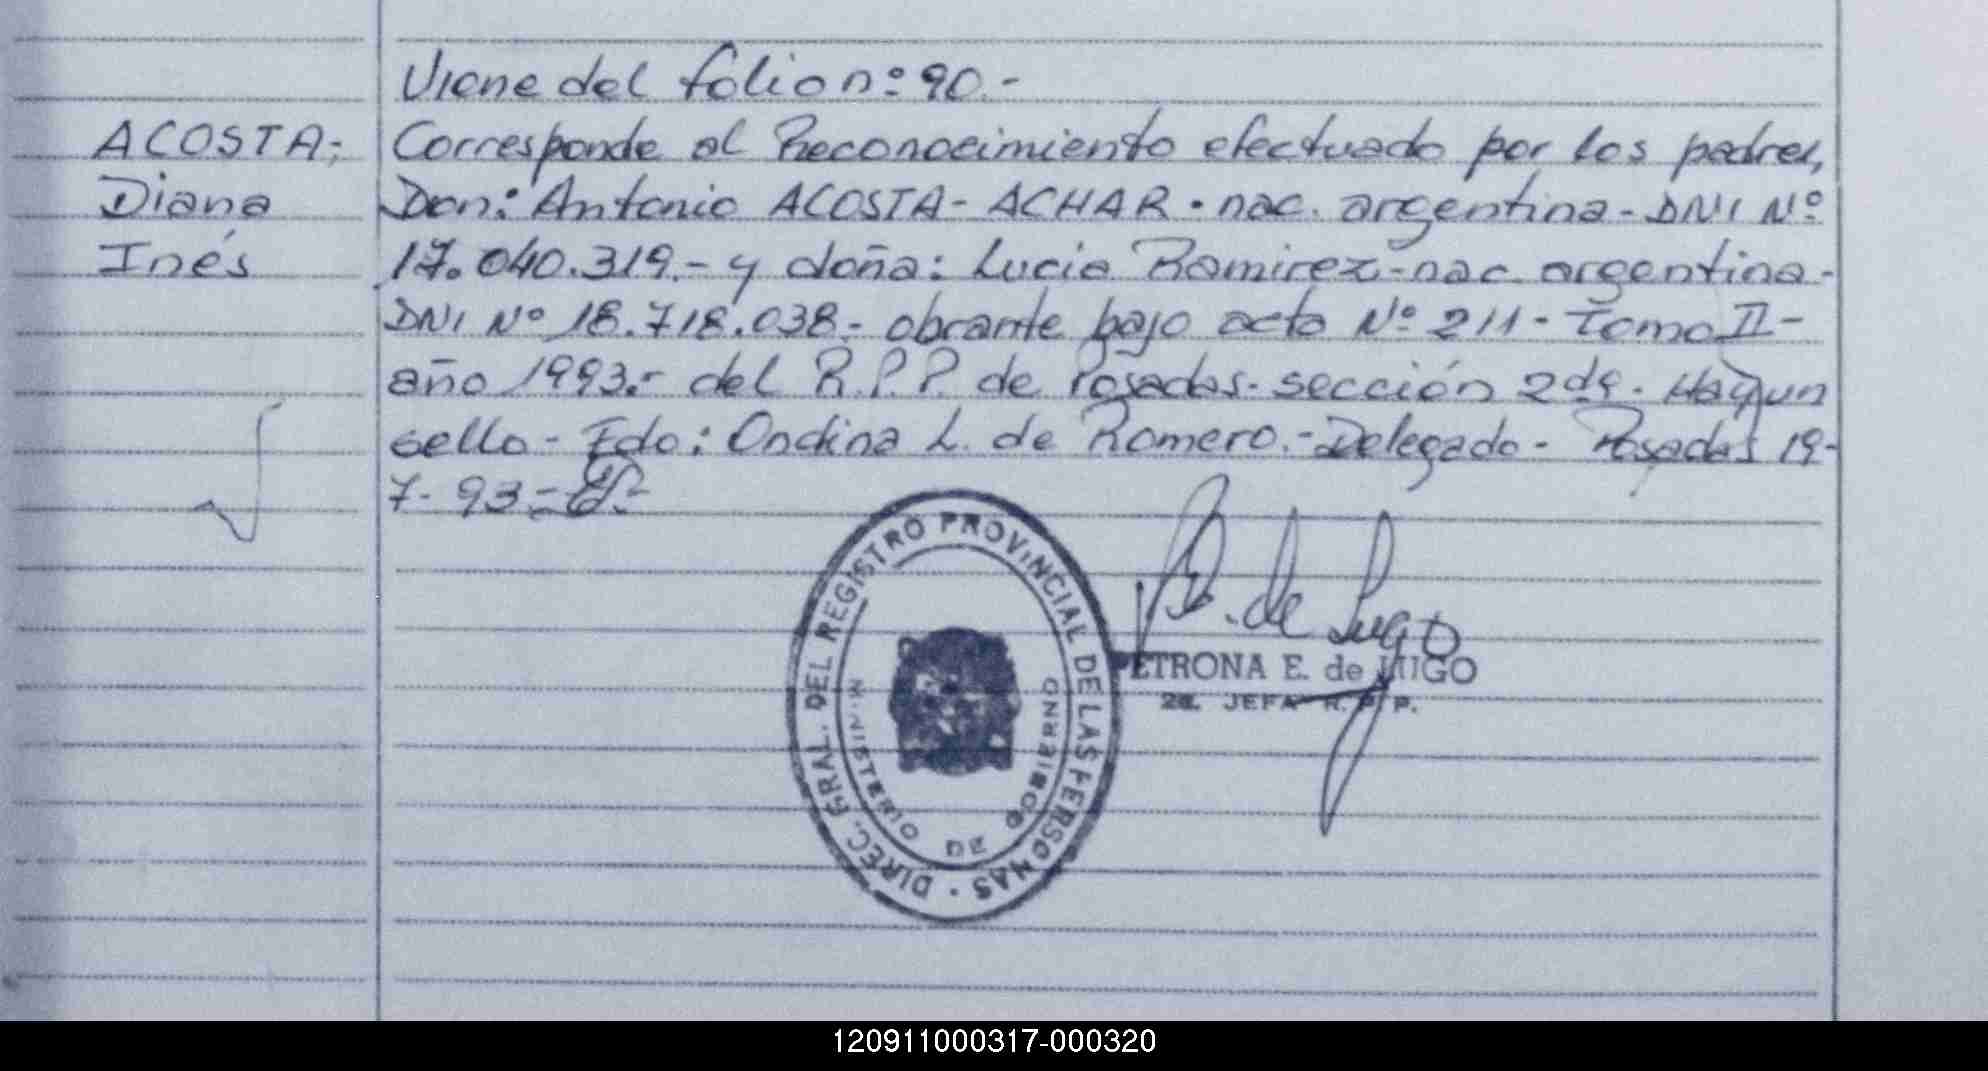 Viene del folio n:º 90.-
ACOSTA;
Diana
Inés
Corresponde al Reconocimiento efectuado por los padres,
Don: Antonio ACOSTA- ACHAR - nac. argentina - DNI Nº
17.040.319.- y doña: Lucia Ramirez - nac argentina -
DNI Nº 18.718.038.- obrante bajo acta Nº 211 - Tomo II -
año 1993.- del R.P.P. de Posadas - sección 2da. Hay un
sello - Fdo: Ondina L. de Romero.- Delegado - Posadas 19-
7-93
DIREC. GRAL. DEL REGISTRO PROVINCIAL DE LAS PERSONAS
MINISTERIO DE GOBIERNO
de Lugo
PETRONA E. de LUGO
2a. JEFA R. P. P.
120911000317-000320